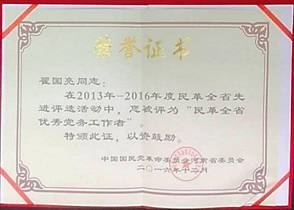 荣誉证书
翟国亮同志：
在2013年-2016年度民革全省先
进评选活动中，您被评为“民革全省
优秀党务工作者”
特颁此证，以资鼓励。
中国国民党革命委员会河南省委员会
二〇一六年十二月